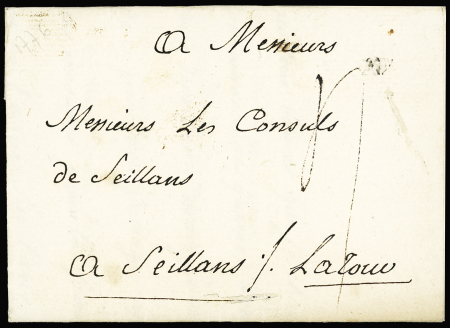 A Messieurs
Messieurs Les Consuls
de Seillans
A Seillans /. Latour